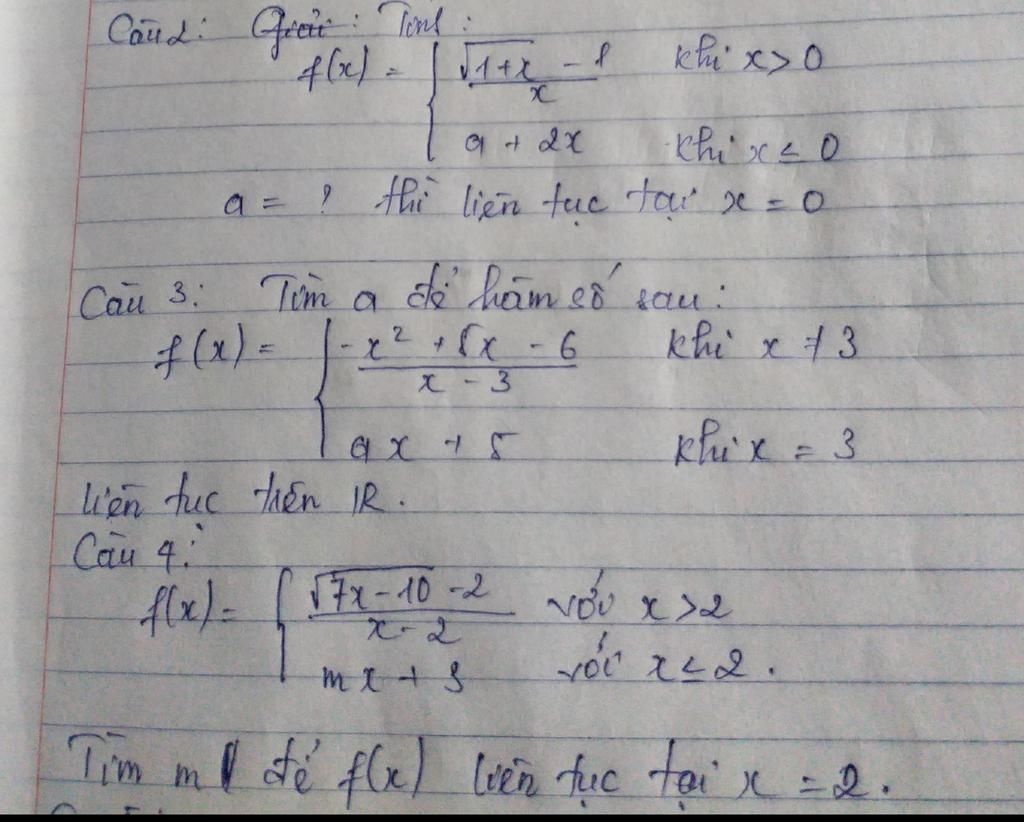 Câu 2: Giải: Tính:
f(x) = { (√(1+x) - 1)/x khi x > 0
a + 2x khi x ≤ 0
a = ? thì liên tục tại x = 0
Câu 3: Tìm a để hàm số sau:
f(x) = { (-x² + 5x - 6)/(x - 3) khi x ≠ 3
ax + 5 khi x = 3
liên tục trên R.
Câu 4:
f(x) = { (√(7x-10) - 2)/(x - 2) với x > 2
mx + 3 với x ≤ 2.
Tìm m để f(x) liên tục tại x = 2.